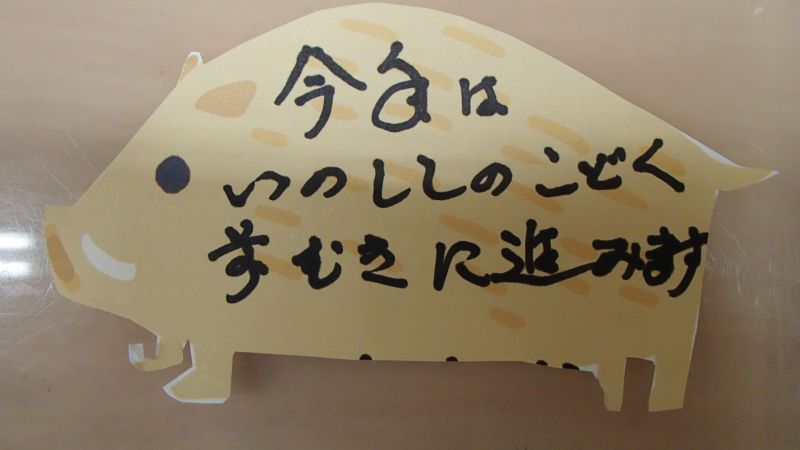 今年は
いのししのごとく
前むきに進みます